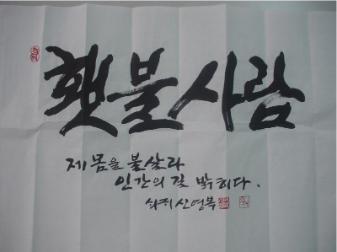 횃불사람
제 몸을 불살라
인간의 길 밝히다.
신영복